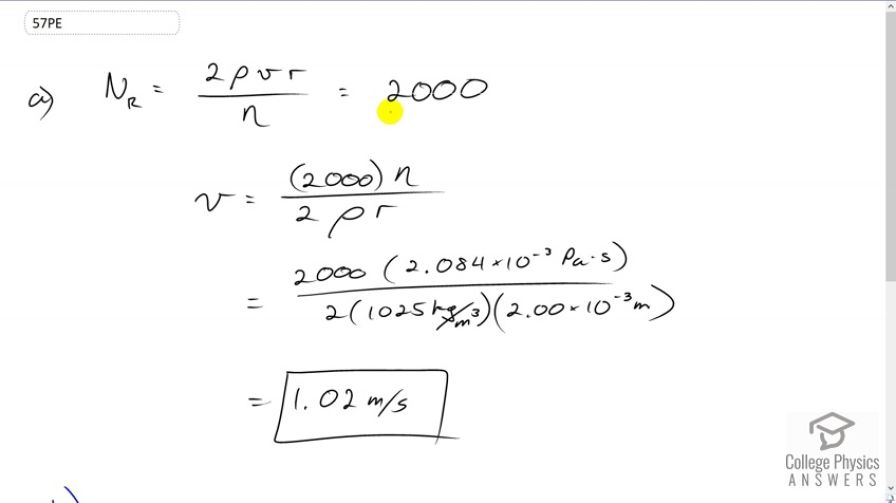 57PE
a) N_R = 2ρvr/η = 2000
v = (2000)η/2ρr
= 2000 (2.084×10⁻³ Pa·s)/2(1025 kg/m³)(2.00×10⁻³ m)
= 1.02 m/s
College Physics
ANSWERS